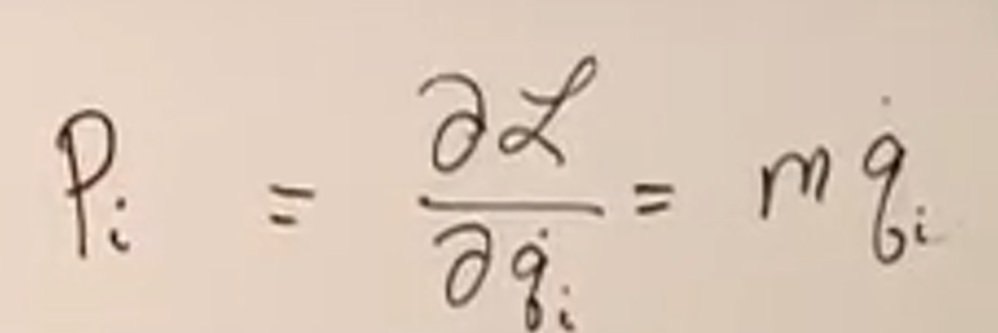 $P_i = \frac{\partial \mathcal{L}}{\partial \dot{q}_i} = m \dot{q}_i$